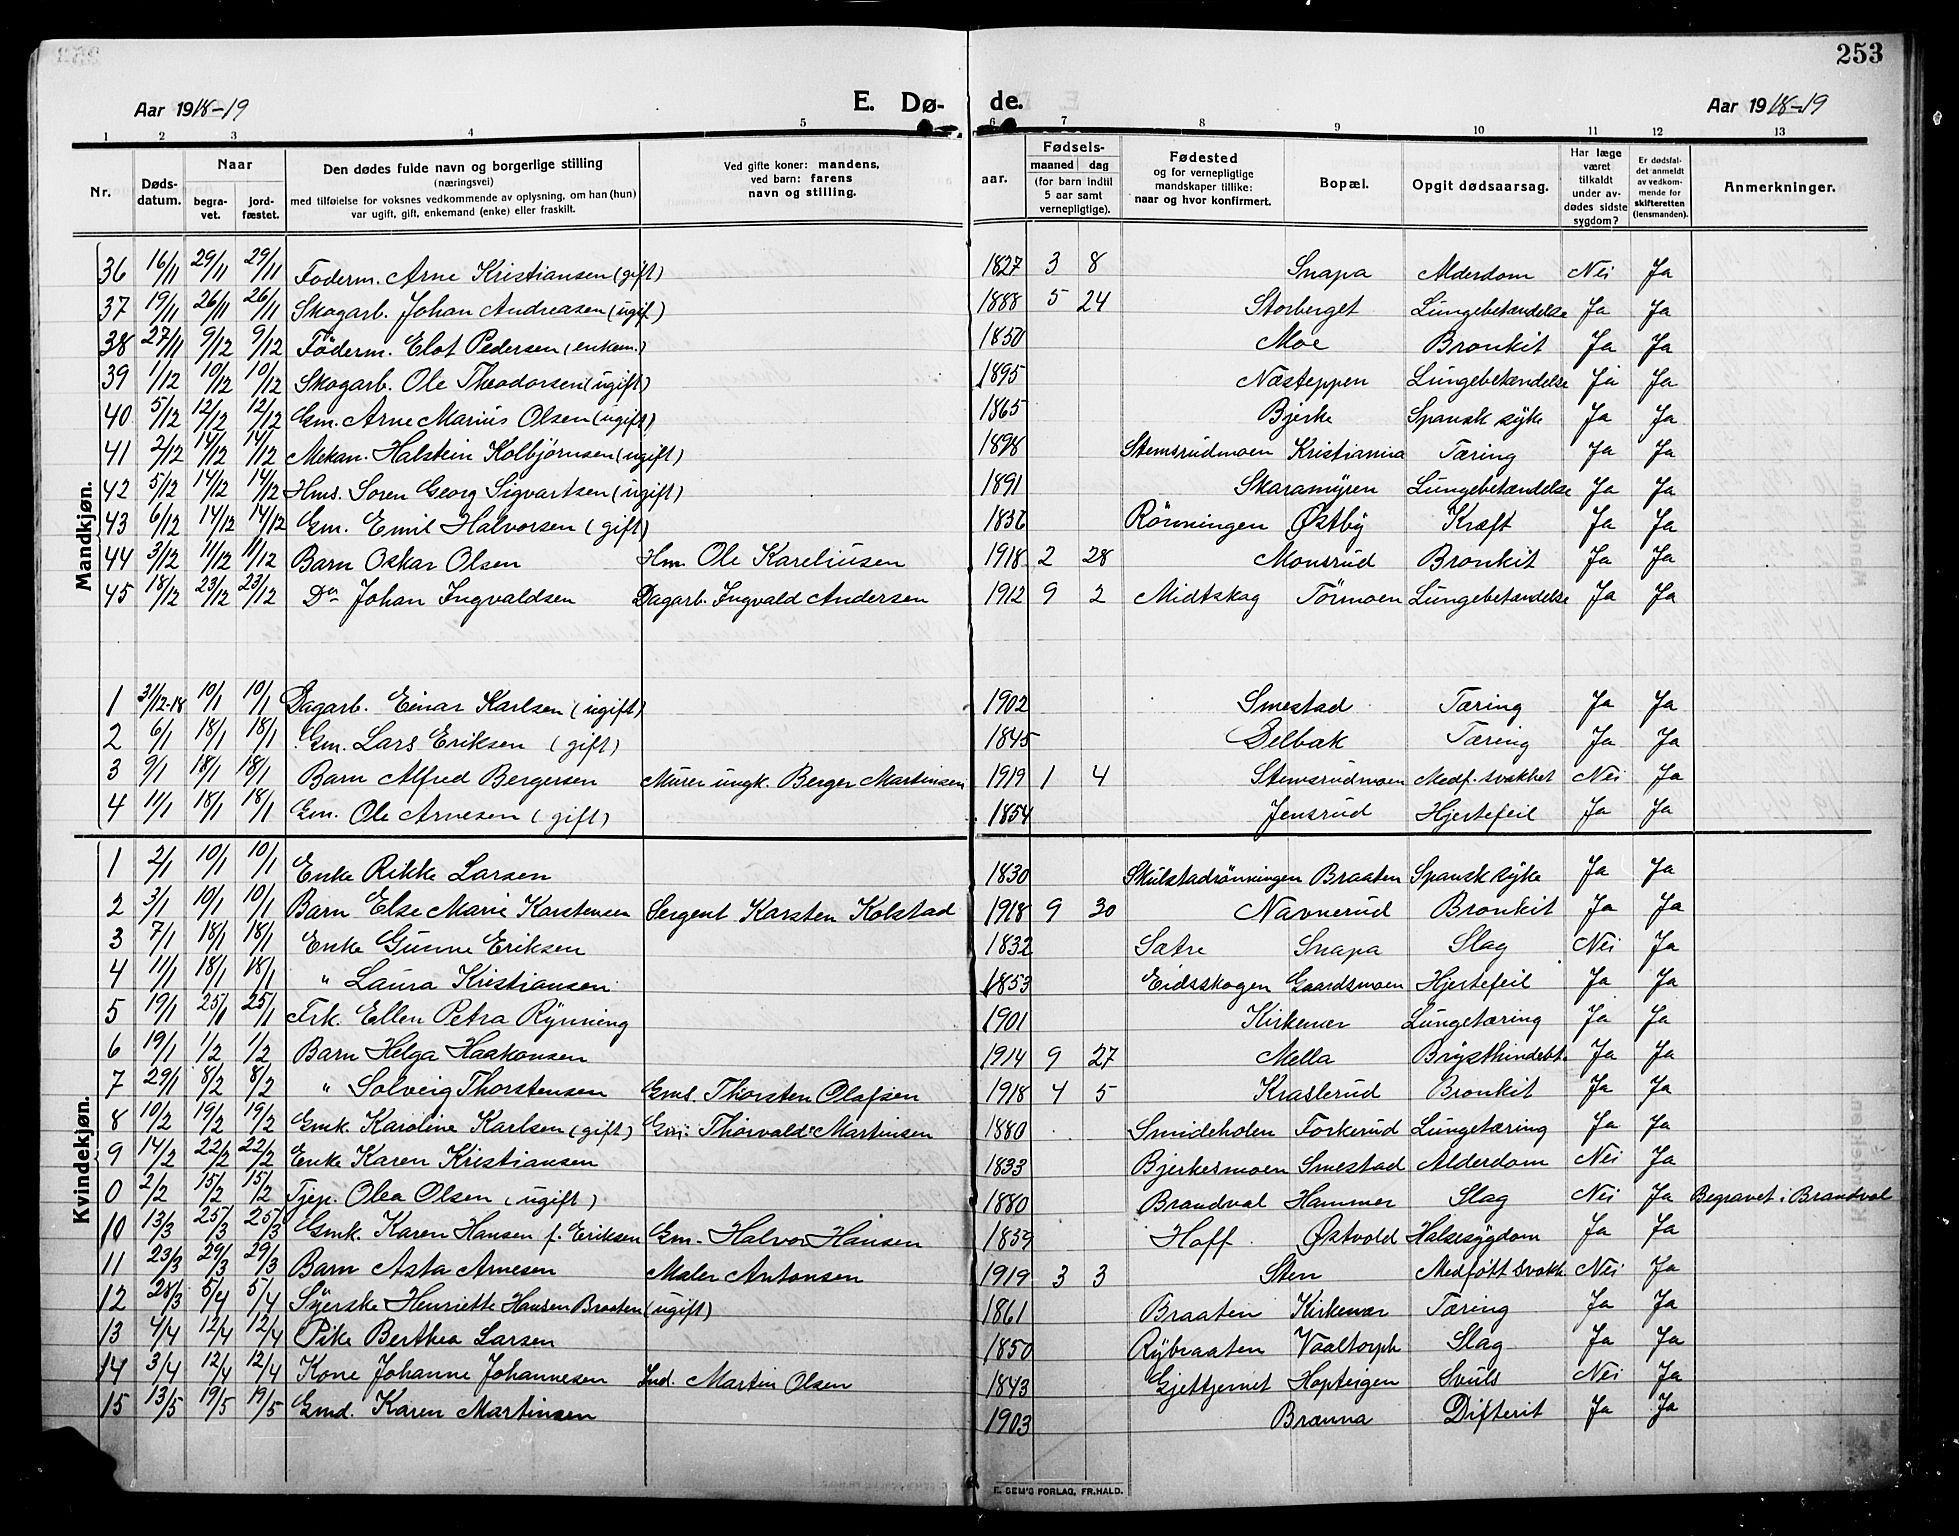 253
Aar 1918-19 E. Dø- de. Aar 1918-19
1 2 3 4 5 6 7 8 9 10 11 12 13
Nr. Døds-datum. Naar begra-vet. jord-fæstet. Den dødes fulde navn og borgerlige stilling (næringsvei) med tilføielse for voksnes vedkommende av oplysning, om han (hun) var ugift, gift, enkemand (enke) eller fraskilt. Ved gifte koner: mandens, ved barn: farens navn og stilling. Fødsels- aar. maaned dag (for barn indtil 5 aar samt vernepligtige). Fødested og for vernepligtige mandskaper tillike: naar og hvor konfirmert. Bopæl. Opgit dødsaarsag. Har læge været tilkaldt under av-dødes sidste sygdom? Er dødsfal-det anmeldt av vedkom-mende for skifteretten (lensmanden). Anmerkninger.
Mandkjøn.
36 16/11 29/11 29/11 Föderm. Arne Kristiansen (gift) 1827 3 8 Snapa Alderdom Nei Ja
37 19/11 26/11 26/11 Skogarb. Johan Andreasen (ugif) 1888 5 24 Storberget Lungebetændelse Ja Ja
38 27/11 9/12 9/12 Föderm. Elot Pedersen (enkem.) 1850 Moe Bronkit Ja Ja
39 1/12 10/12 10/12 Skogarb. Ole Theodorsen (ugift) 1895 Næsteppen Lungebetændelse Ja Ja
40 5/12 12/12 12/12 Gm. Arne Marius Olsen (ugift) 1865 Bjerke Spansk syke Ja Ja
41 2/12 14/12 14/12 Mekan. Halstein Kolbjørnsen (ugift) 1898 Stemsrudmoen Kristiania Tæring Ja Ja
42 5/12 14/12 14/12 Hms. Soren Georg Sigvartsen (ugift) 1891 Skaramyren Lungebetændelse Ja Ja
43 6/12 14/12 14/12 Gm. Emil Halvorsen (gift) 1836 Rönningen Østby Kræft Ja Ja
44 3/12 11/12 11/12 Barn Oskar Olsen Hm. Ole Kareliusen 1918 2 28 Monsrud Bronkit Ja Ja
45 18/12 23/12 23/12 Do Johan Ingvaldsen Dagarb. Ingvald Andersen 1912 9 2 Midtskog Törmoen Lungebetændelse Ja Ja
1 31/12-18 10/1 10/1 Dagarb. Einar Karlsen (ugift) 1902 Smestad Tæring Ja Ja
2 6/1 18/1 18/1 Gm. Lars Eriksen (gift) 1845 Selbæk Tæring Ja Ja
3 9/1 18/1 18/1 Barn Alfred Bergersen Murer ungk. Berger Martinsen 1919 1 4 Stemsrudmoen Medf. svakhet Nei Ja
4 11/1 18/1 18/1 Gm. Ole Arnesen (gift) 1854 Jensrud Hjertefeil Ja Ja
Kvindekjøn.
1 2/1 10/1 10/1 Enke Rikke Larsen 1830 Skulstadrönningen Braaten Spansk syke Ja Ja
2 3/1 10/1 10/1 Barn Else Marie Karstensen Sergent Karsten Kolstad 1918 9 30 Navnerud Bronkit Ja Ja
3 7/1 18/1 18/1 Enke Gunne Eriksen 1832 Sætre Snapa Slag Nei Ja
4 11/1 18/1 18/1 " Laura Kristiansen 1853 Eidsskogen Gaardsmoen Hjertefeil Ja Ja
5 19/1 25/1 25/1 Frk. Ellen Petra Rynning 1901 Kirkenær Lungetæring Ja Ja
6 19/1 1/2 1/2 Barn Helga Haakonsen 1914 9 27 Mella Brysthindebt. Ja Ja
7 29/1 8/2 8/2 " Solveig Thorstensen Gms. Thorsten Olafsen 1918 4 5 Kraslerud Bronkit Ja Ja
8 10/2 19/2 19/2 Gmk. Karoline Karlsen (gift) Gm. Thorvald Martinsen 1880 Smideholen Forkerud Lungetæring Ja Ja
9 14/2 22/2 22/2 Enke Karen Kristiansen 1833 Bjerkesmoen Smestad Alderdom Nei Ja
0 2/2 15/2 15/2 Tjep. Olea Olsen (ugift) 1880 Brandval Hammer Slag Nei Ja Begravet i Brandval
10 13/3 25/3 25/3 Gmk. Karen Hansen f. Eriksen Gm. Halvor Hansen 1859 Hoff Østvold Halsesygdom Ja Ja
11 23/3 29/3 29/3 Barn Asta Arnesen Maler Antonsen 1919 3 3 Sten Medfött svakh Nei Ja
12 28/3 5/4 5/4 Syerske Henriette Hansen Braaten (ugift) 1861 Braaten Kirkenær Tæring Ja Ja
13 4/4 12/4 12/4 Pike Berthea Larsen 1850 Rybraaten Vaaltorph Slag Ja Ja
14 3/4 12/4 12/4 Kone Johanne Johannesen Ind. Martin Olsen 1843 Gjettjernet Hopteigen Svuls Nei Ja
15 13/5 19/5 19/5 Gmd. Karen Martinsen 1903 Brænna Difterit Ja Ja
E. SEM'S FORLAG, FR.HALD.